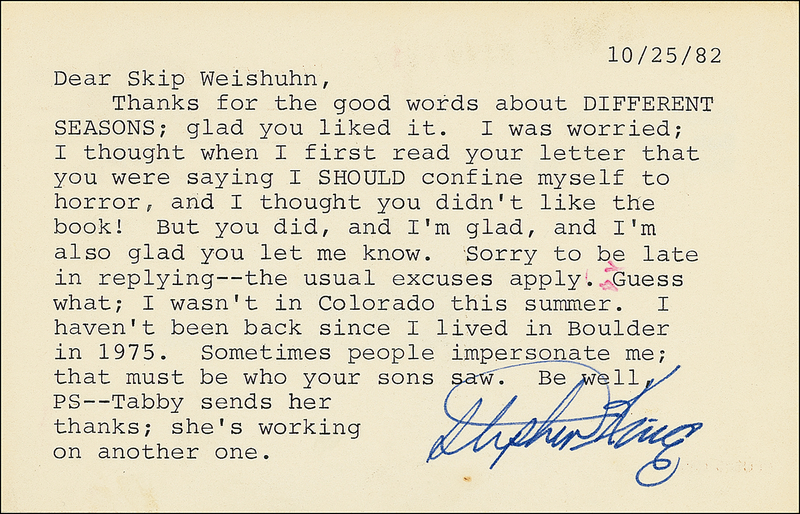 10/25/82
Dear Skip Weishuhn,
Thanks for the good words about DIFFERENT
SEASONS; glad you liked it. I was worried;
I thought when I first read your letter that
you were saying I SHOULD confine myself to
horror, and I thought you didn't like the
book! But you did, and I'm glad, and I'm
also glad you let me know. Sorry to be late
in replying--the usual excuses apply. Guess
what; I wasn't in Colorado this summer. I
haven't been back since I lived in Boulder
in 1975. Sometimes people impersonate me;
that must be who your sons saw. Be well,
PS--Tabby sends her
thanks; she's working
on another one.
Stephen King